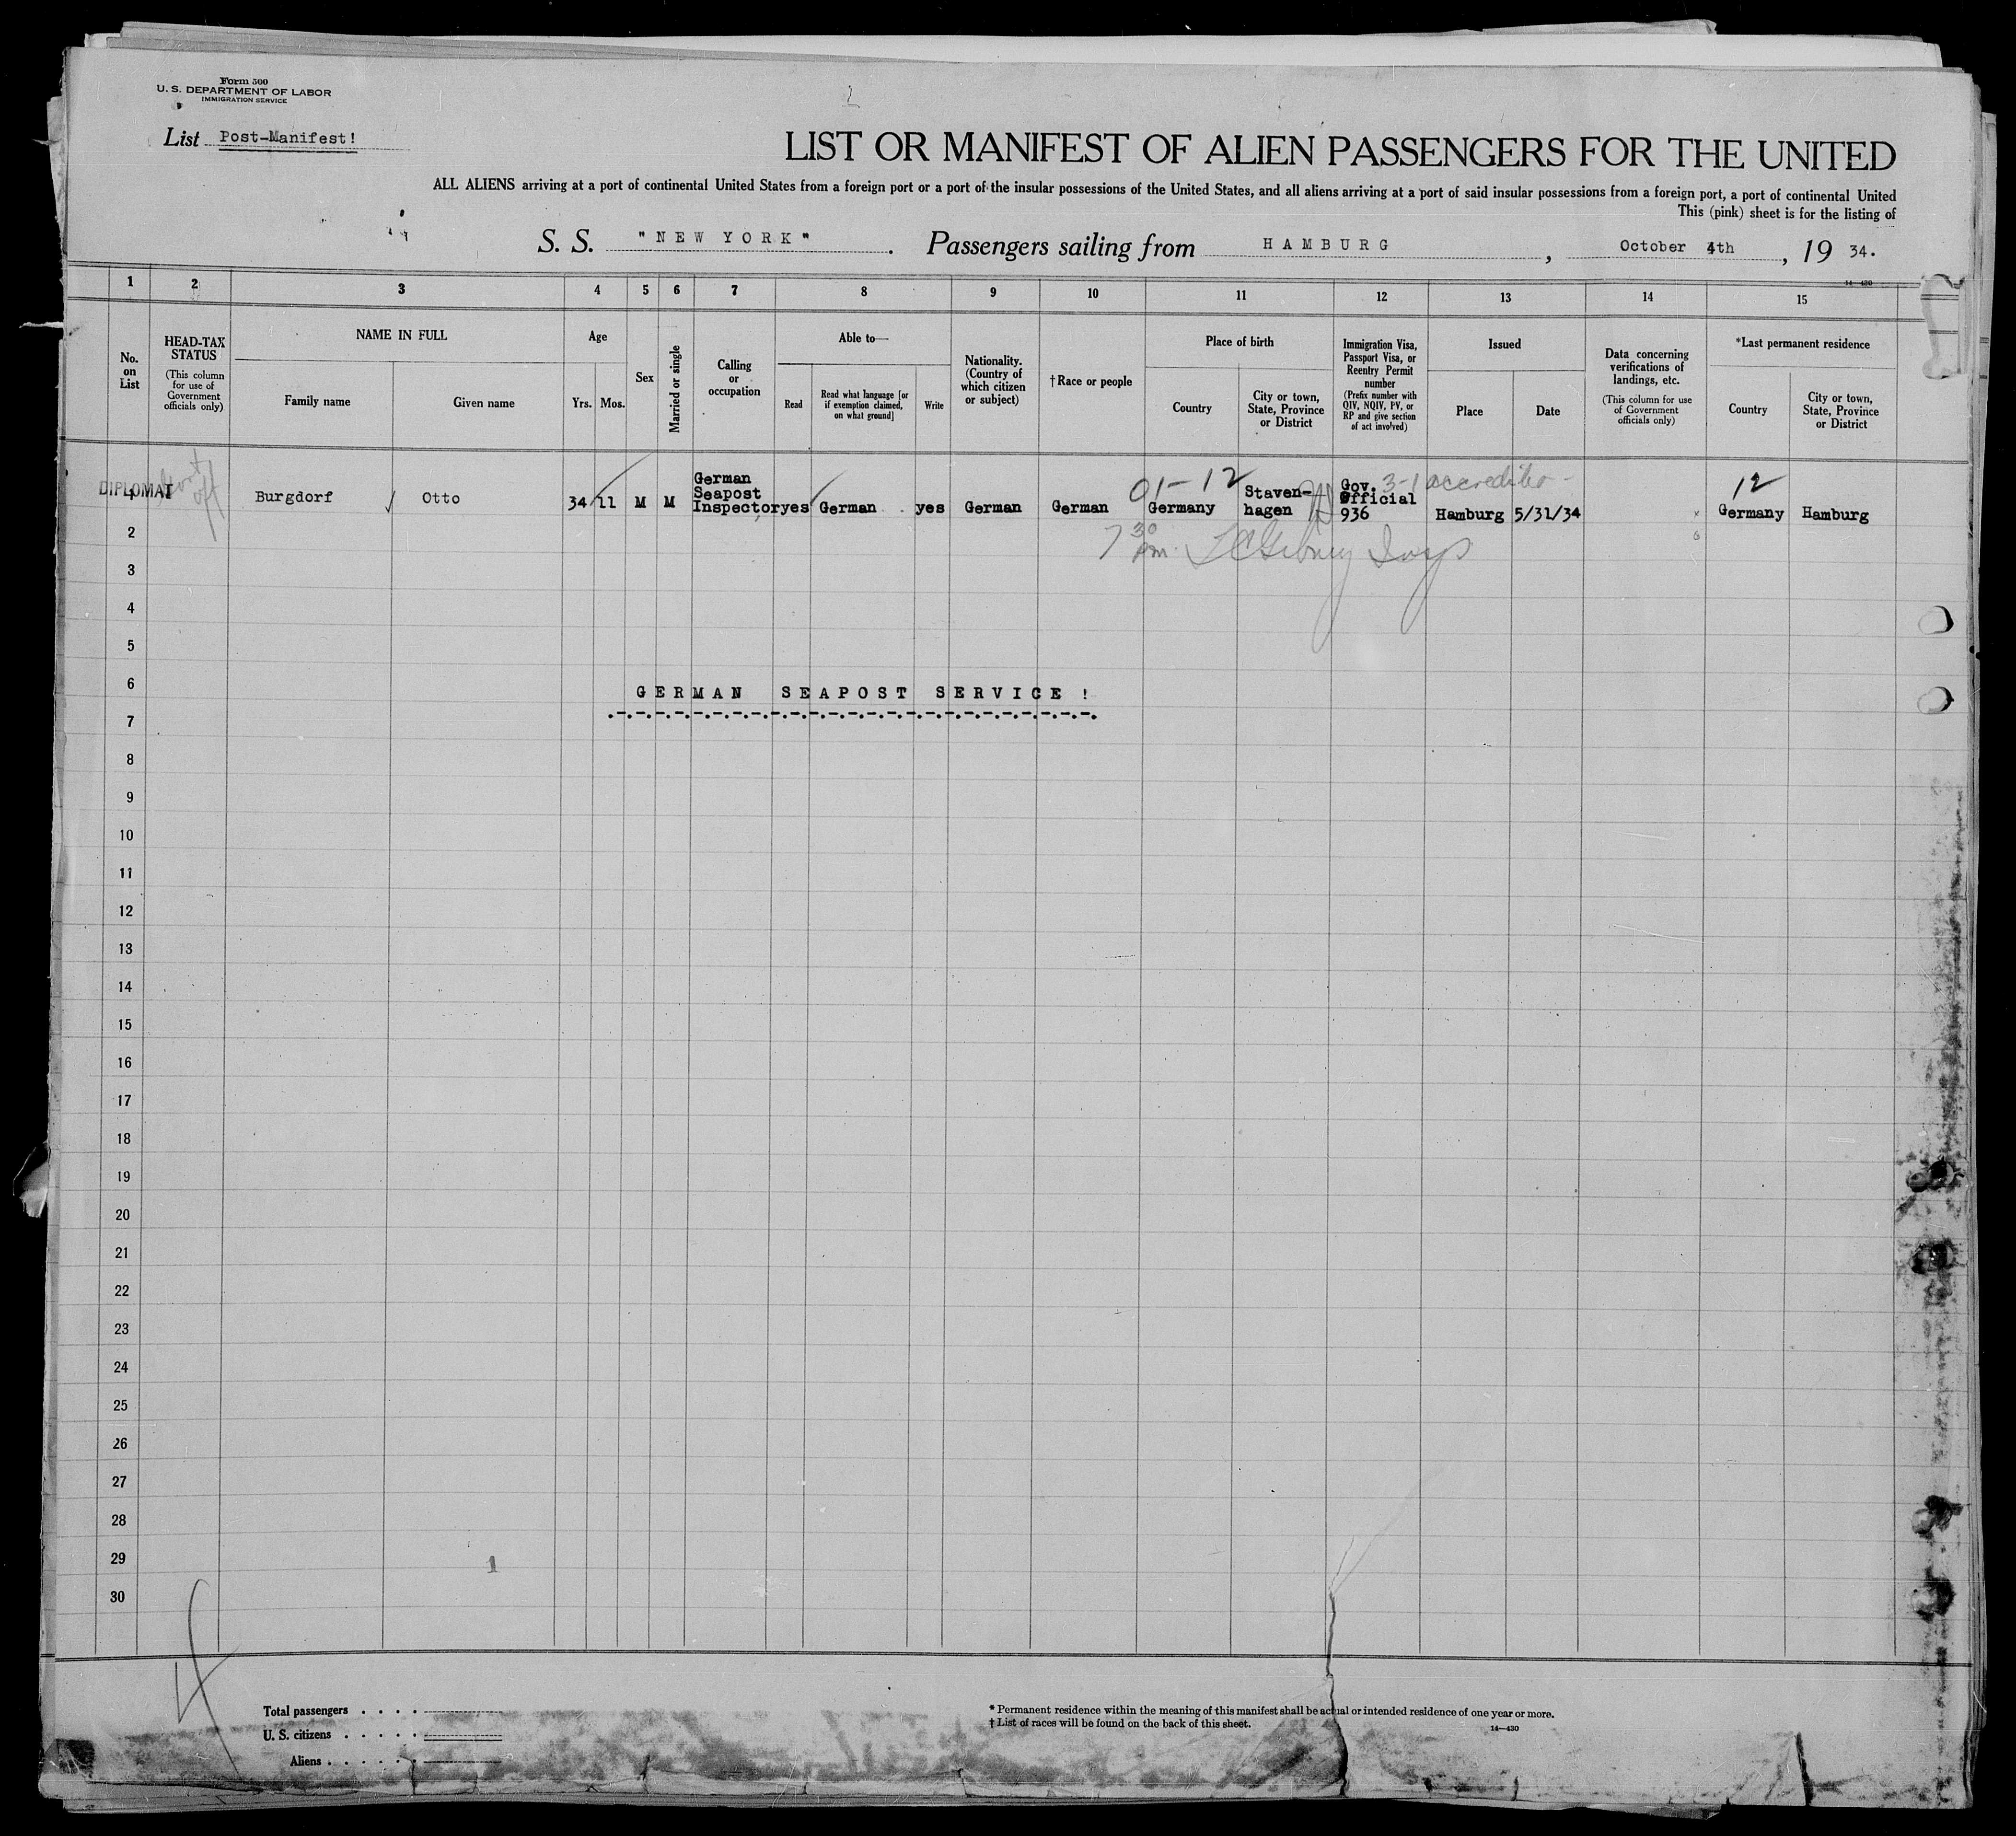 Form 500
U. S. DEPARTMENT OF LABOR
IMMIGRATION SERVICE
List Post-Manifest!
LIST OR MANIFEST OF ALIEN PASSENGERS FOR THE UNITED
ALL ALIENS arriving at a port of continental United States from a foreign port or a port of the insular possessions of the United States, and all aliens arriving at a port of said insular possessions from a foreign port, a port of continental United
This (pink) sheet is for the listing of
S. S. "NEW YORK". Passengers sailing from HAMBURG, October 4th, 19 34.
14-430
1 2 3 4 5 6 7 8 9 10 11 12 13 14 15
No. on List
HEAD-TAX STATUS
(This column for use of Government officials only)
NAME IN FULL
Family name
Given name
Age
Yrs. Mos.
Sex
Married or single
Calling or occupation
Able to—
Read
Read what language [or if exemption claimed, on what ground]
Write
Nationality. (Country of which citizen or subject)
†Race or people
Place of birth
Country
City or town, State, Province or District
Immigration Visa, Passport Visa, or Reentry Permit number
(Prefix number with QIV, NQIV, PV, or RP and give section of act involved)
Issued
Place
Date
Data concerning verifications of landings, etc.
(This column for use of Government officials only)
*Last permanent residence
Country
City or town, State, Province or District
DIPLOMAT Burgdorf Otto 34 11 M M German Seapost Inspector yes German yes German German 01-12 Germany Staven-hagen Gov. Official 936 3-1 Hamburg 5/31/34 12 Germany Hamburg
7 30 pm.
2
3
4
5
6
GERMAN SEAPOST SERVICE !
7
8
9
10
11
12
13
14
15
16
17
18
19
20
21
22
23
24
25
26
27
28
29
1
30
Total passengers . . . .
U. S. citizens . . . . .
Aliens . . . . . .
* Permanent residence within the meaning of this manifest shall be actual or intended residence of one year or more.
† List of races will be found on the back of this sheet.
14-430